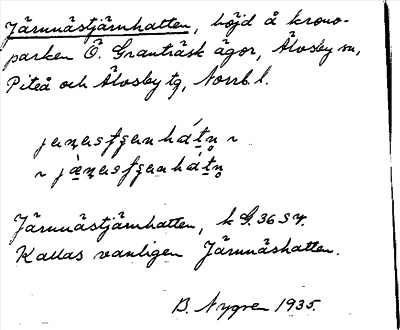 Järnnästjärnhatten, höjd å krono-
parken Ö. Granträsk ägor, Älvsby sn,
Piteå och Älvsby tg, Norrb. l.
Järnnästjärnhatten, k G. 36 S V.
Kallas vanligen Järnnäshatten.
B. Nygren 1935.